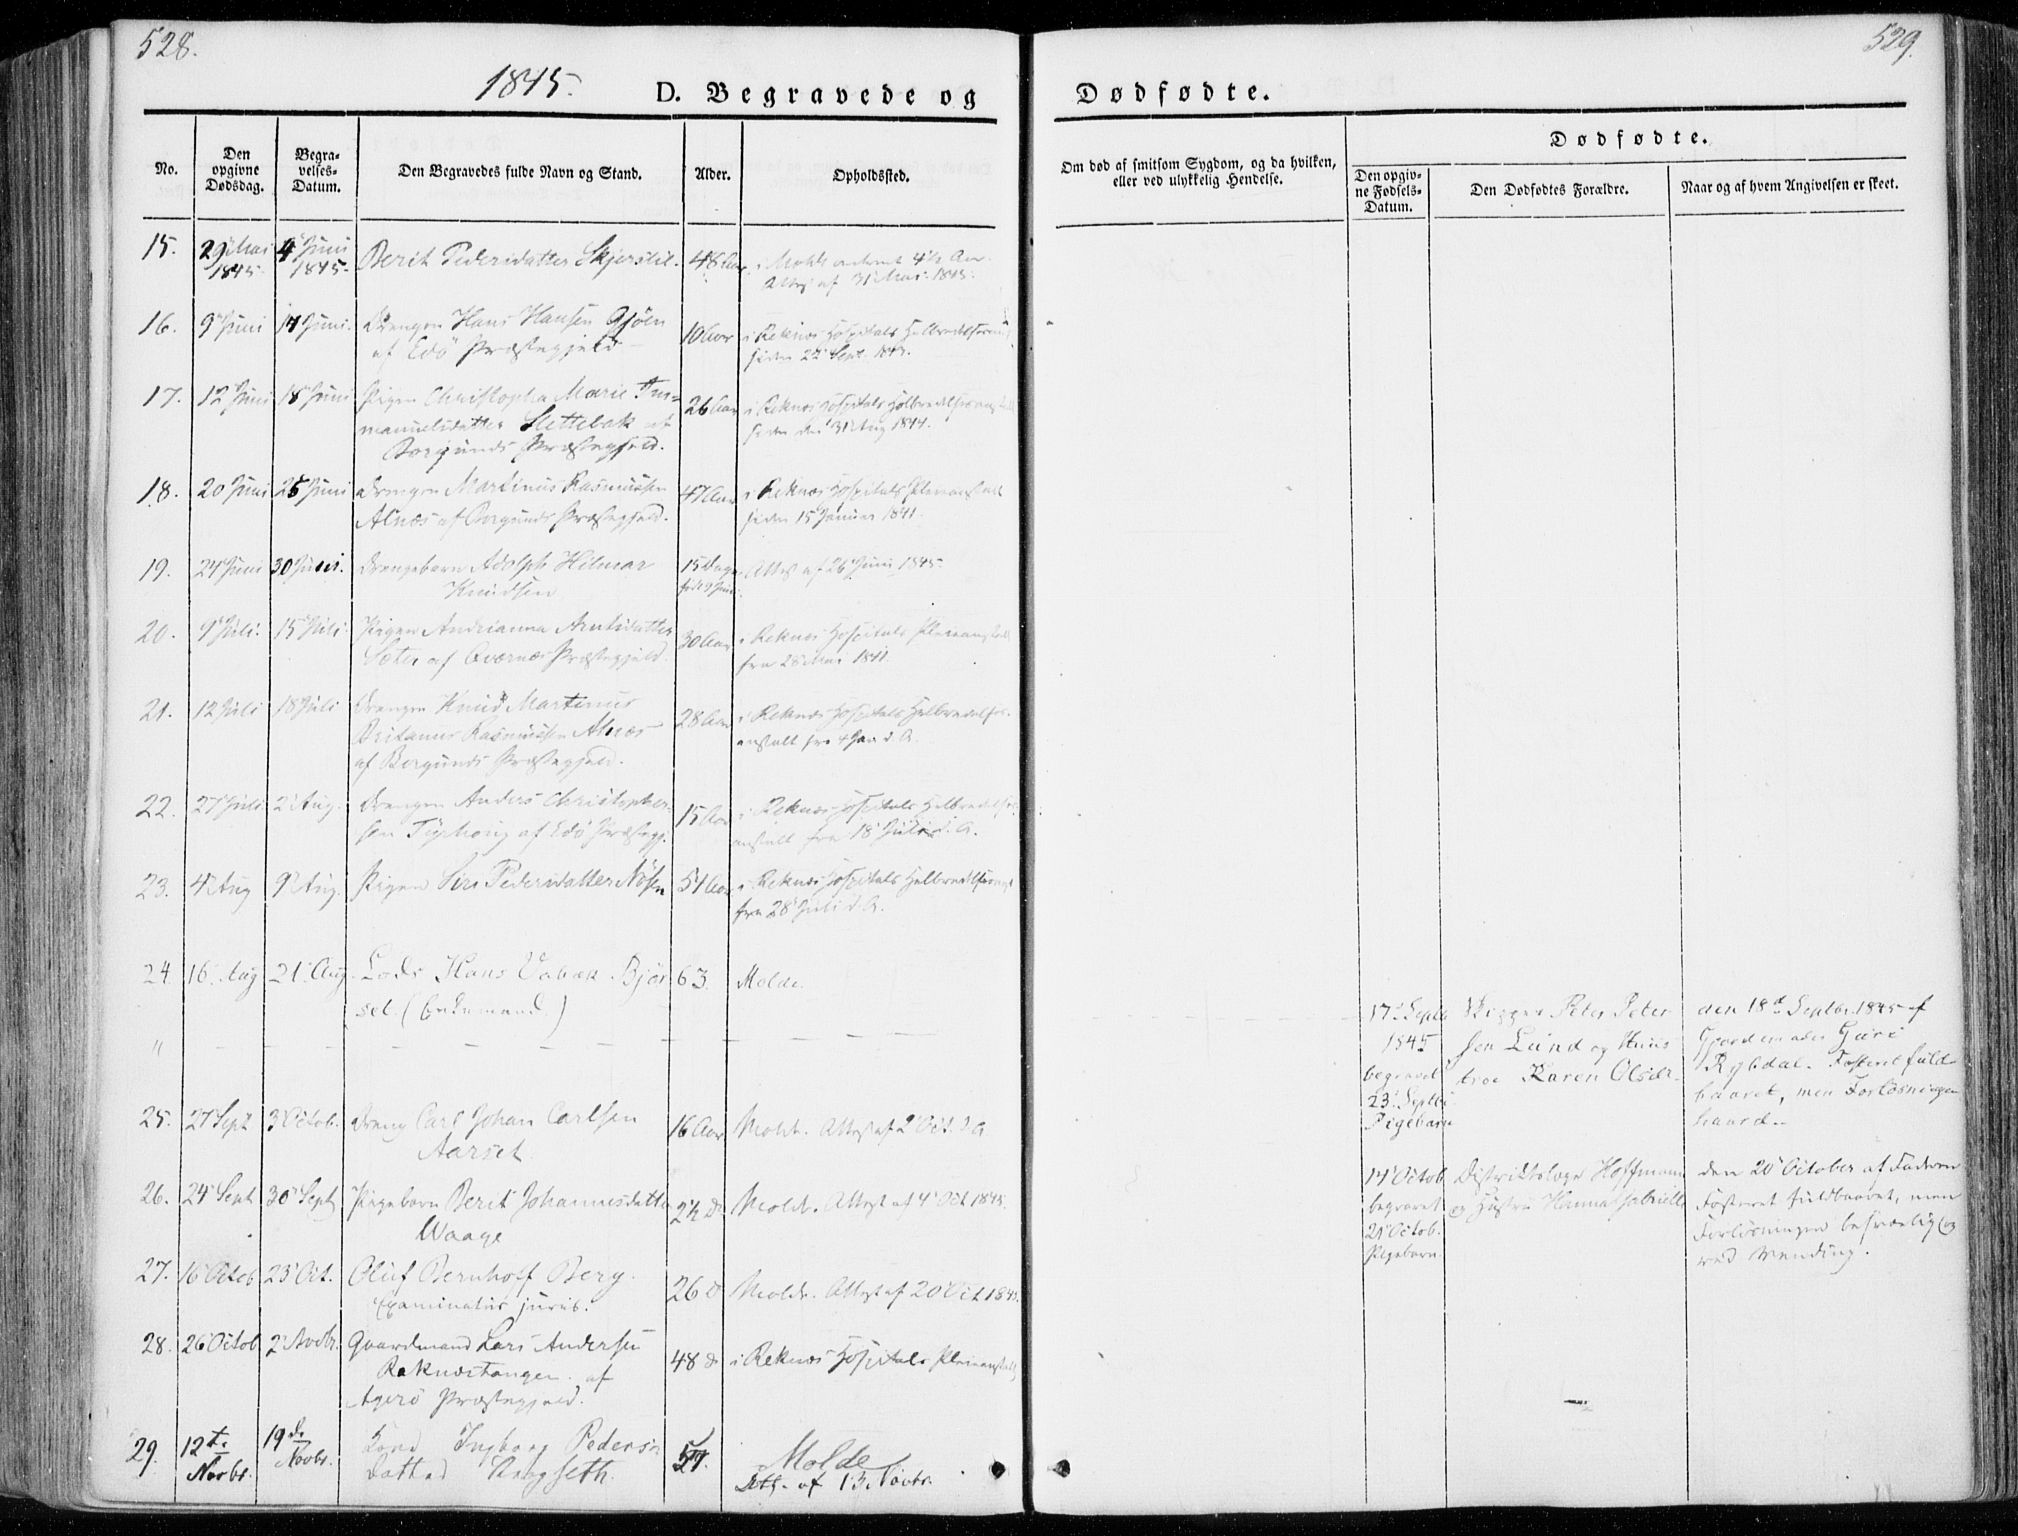 528.
529.
1845.
D. Begravede og
Dødfødte.
No.
Den opgivne Dødsdag.
Begravelses-Datum.
Den Begravedes fulde Navn og Stand.
Alder.
Opholdssted.
Om død af smitsom Sygdom, og da hvilken,
eller ved ulykkelig Hendelse.
Dødfødte.
Den opgivne Fødsels-Datum.
Den Dødfødtes Forældre.
Naar og af hvem Angivelsen er skeet.
15. 29 Mai 4 Juni Berit Pedersdatter 48 Aar i Molde
1845 1845 Attest af 31 Mai 1845.
16. 9 Juni 14 Juni Drengen Hans Hansen Gjöen 10 Aar i Reknes Hospitals
af Edö Præstegjeld siden 22 Sept.
17. 12 Juni 18 Juni Pigen Christopha Marie Em= 26 Aar i Reknes Hospitals
manuelsdatter Slettebak af siden den 31 Aug 1844.
Borgunds Præstegjeld.
18. 20 Juni 25 Juni Drengen Martinus Rasmussen 47 Aar i Reknes Hospitals Pleieanstalt
Alnæs af Borgunds Præstegjeld. siden 15 Januar 1841.
19. 24 Juni 30 Juni. Drengebarn Adolph Hilmar 15 Dage Attest af 26 Juni 1845.
Knudsen født 9 Juni
20. 9 Juli. 15 Juli Pigen Andrianna 30 Aar i Reknes Hospitals Pleieanstalt
Sæter af Qværnes Præstegjeld. fra 28 Mai 1841.
21. 12 Juli 18 Juli Drengen Knud Martinus 28 Aar i Reknes Hospitals Helbredelses-
Rasmussen Alnæs anstalt fra 4 Jan d. A.
af Borgunds Præstegjeld.
22. 27 Juli 2 Aug. Drengen Anders Christopher= 15 Aar i Reknes Hospitals
sen af Edö Præstegj. anstalt fra 18 Juli d. A.
23. 4 Aug 9 Aug. Pigen Siri Pedersdatter 54 Aar i Reknes Hospitals
fra 28 Juli d. A.
24. 16 Aug 21 Aug. Lods Hans 63. Molde.
set. (Enkemand.)
" 17 Septb Skipper Peter Peter den 18d Septbr. 1845 af
1845 sen Lund og Huus Gjordemoder Guri
begravet troe Karen Olsdr. Rybdal. Fosteret fuld
23 Septbr baaret, men Forløsningen
Pigebarn haard.
25. 27 Sept 3 Octob. Dreng Carl Johan Carlsen 16 Aar Molde. Attest af 2 Oct. d A
Aarset.
26. 24 Sept 30 Sept Pigebarn Berit Johannesdatter Molde. Attest af 4 Oct 1845.
Waage
14 Octob Distriktslæge Hoffmann den 20 October af Faderen
begravet og Hustru Hanna Gabrielle Fosteret fuldbaaret, men
21 Octob. Forløsningen besværlig og
Pigebarn ved Vending.
27. 16 Octob 23 Oct. Oluf Bernhoff Berg. 26 Molde. Attest af 20 Oct 1845.
Examinatus juris.
28. 26 Octob 2 Novbr. Gaardmand Lars Andersen 48 i Reknes Hospitals Pleieanstalt
Raknestangen af
Agerö Præstegjeld.
29. 12te 19de Ingborg Peders Molde
Novbr. Novbr. datter Att. af 13. Novbr.